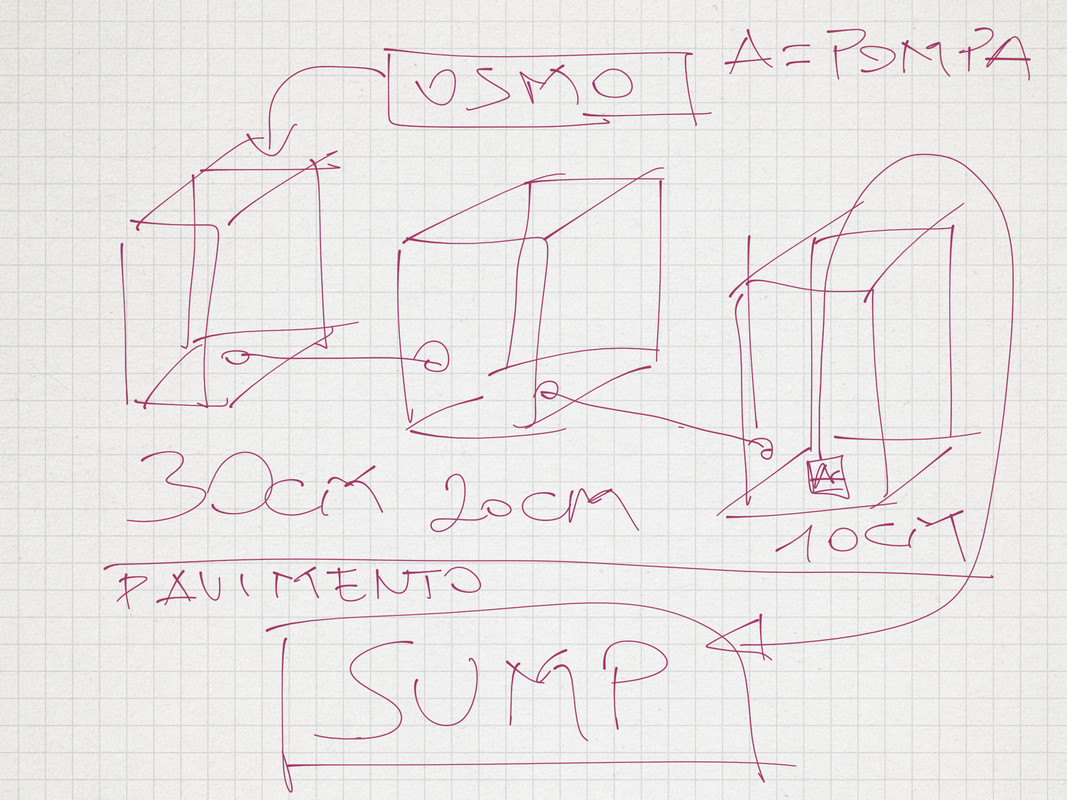 A = POMPA
OSMO
30cm
20cm
A
10cm
PAVIMENTO
SUMP